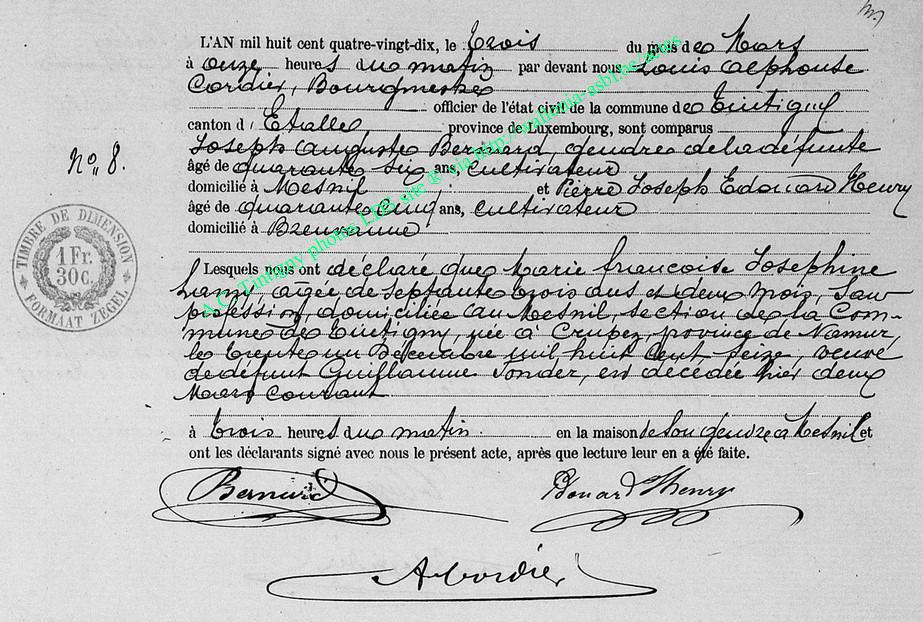 L'AN mil huit cent quatre-vingt-dix, le trois du mois de Mars
à onze heures du matin par devant nous Louis Alphonse
Cordier, Bourgmestre
officier de l'état civil de la commune de Tintigny
canton d'Etalle province de Luxembourg, sont comparus
Joseph Auguste Bernard, gendre de la défunte
âgé de quarante six ans, cultivateur
domicilié à Mesnil et Pierre Joseph Edouard Henry
âgé de quarante cinq ans, cultivateur
domicilié à Breuvanne
Lesquels nous ont déclaré que Marie françoise Josephine
Lamy, âgée de septante trois ans et deux mois, sans
profession, domiciliée au Mesnil, section de la Com-
mune de Tintigny, née à Crupez, province de Namur,
le trente un Décembre mil huit cent seize, veuve
de défunt Guillaume, est décédée hier deux
Mars courant
à trois heures du matin en la maison de son gendre à Mesnil et
ont les déclarants signé avec nous le présent acte, après que lecture leur en a été faite.
No. 8.
TIMBRE DE DIMENSION
1 Fr.
30c.
FORMAAT ZEGEL
A.C. Tintigny photos site © via http://
Bernard
Edouard Henry
A Cordier